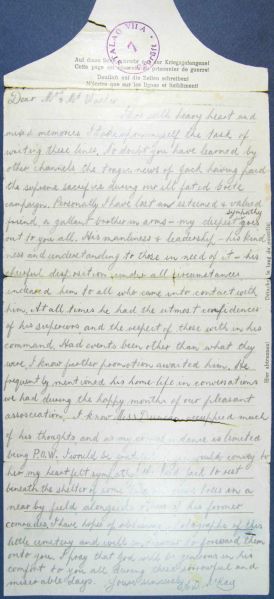 STALAG VIIA
7
Auf diese Seite schreibt nur der Kriegsgefangene!
Cette page est réservée au prisonnier de guerre!
Deutlich auf die Zeilen schreiben!
N'écrire que sur les lignes et lisiblement!
Dear Mr & Mrs
It is with heavy heart and
mixed memories I take upon myself the task of
writing these lines. No doubt you have learned by
other channels the tragic news of Jack having paid
the supreme sacrifice during our ill fated Crete
campaign. Personally I have lost an esteemed & valued
friend, a gallant brother in arms - my deepest sympathy goes
out to you all. His manliness & leadership - his kind
ness and understanding to those in need of it - his
cheerful disposition under all circumstances
endeared him to all who came into contact with
him. At all times he had the utmost confidences
of his superiors and the respect of those with in his
command. Had events been other than what they
were I know further promotion awaited him. He
frequently mentioned his home life in conversations
we had during the happy months of our pleasant
association. I know Miss Duncan occupied much
of his thoughts and as my correspondance is limited
being P.O.W. I would be if you would convey to
her my heartfelt sympathy. Jack to rest
beneath the shelter of some trees in a
near by field alongside of his former
comrades. I have hopes of obtaining photographs of this
little cemetery and will endeavour to forward them
onto you. I pray that God will be in his
comfort to you all during these sorrowful and
miserable days. Yours sincerely
McKay
Hier abtrennen!